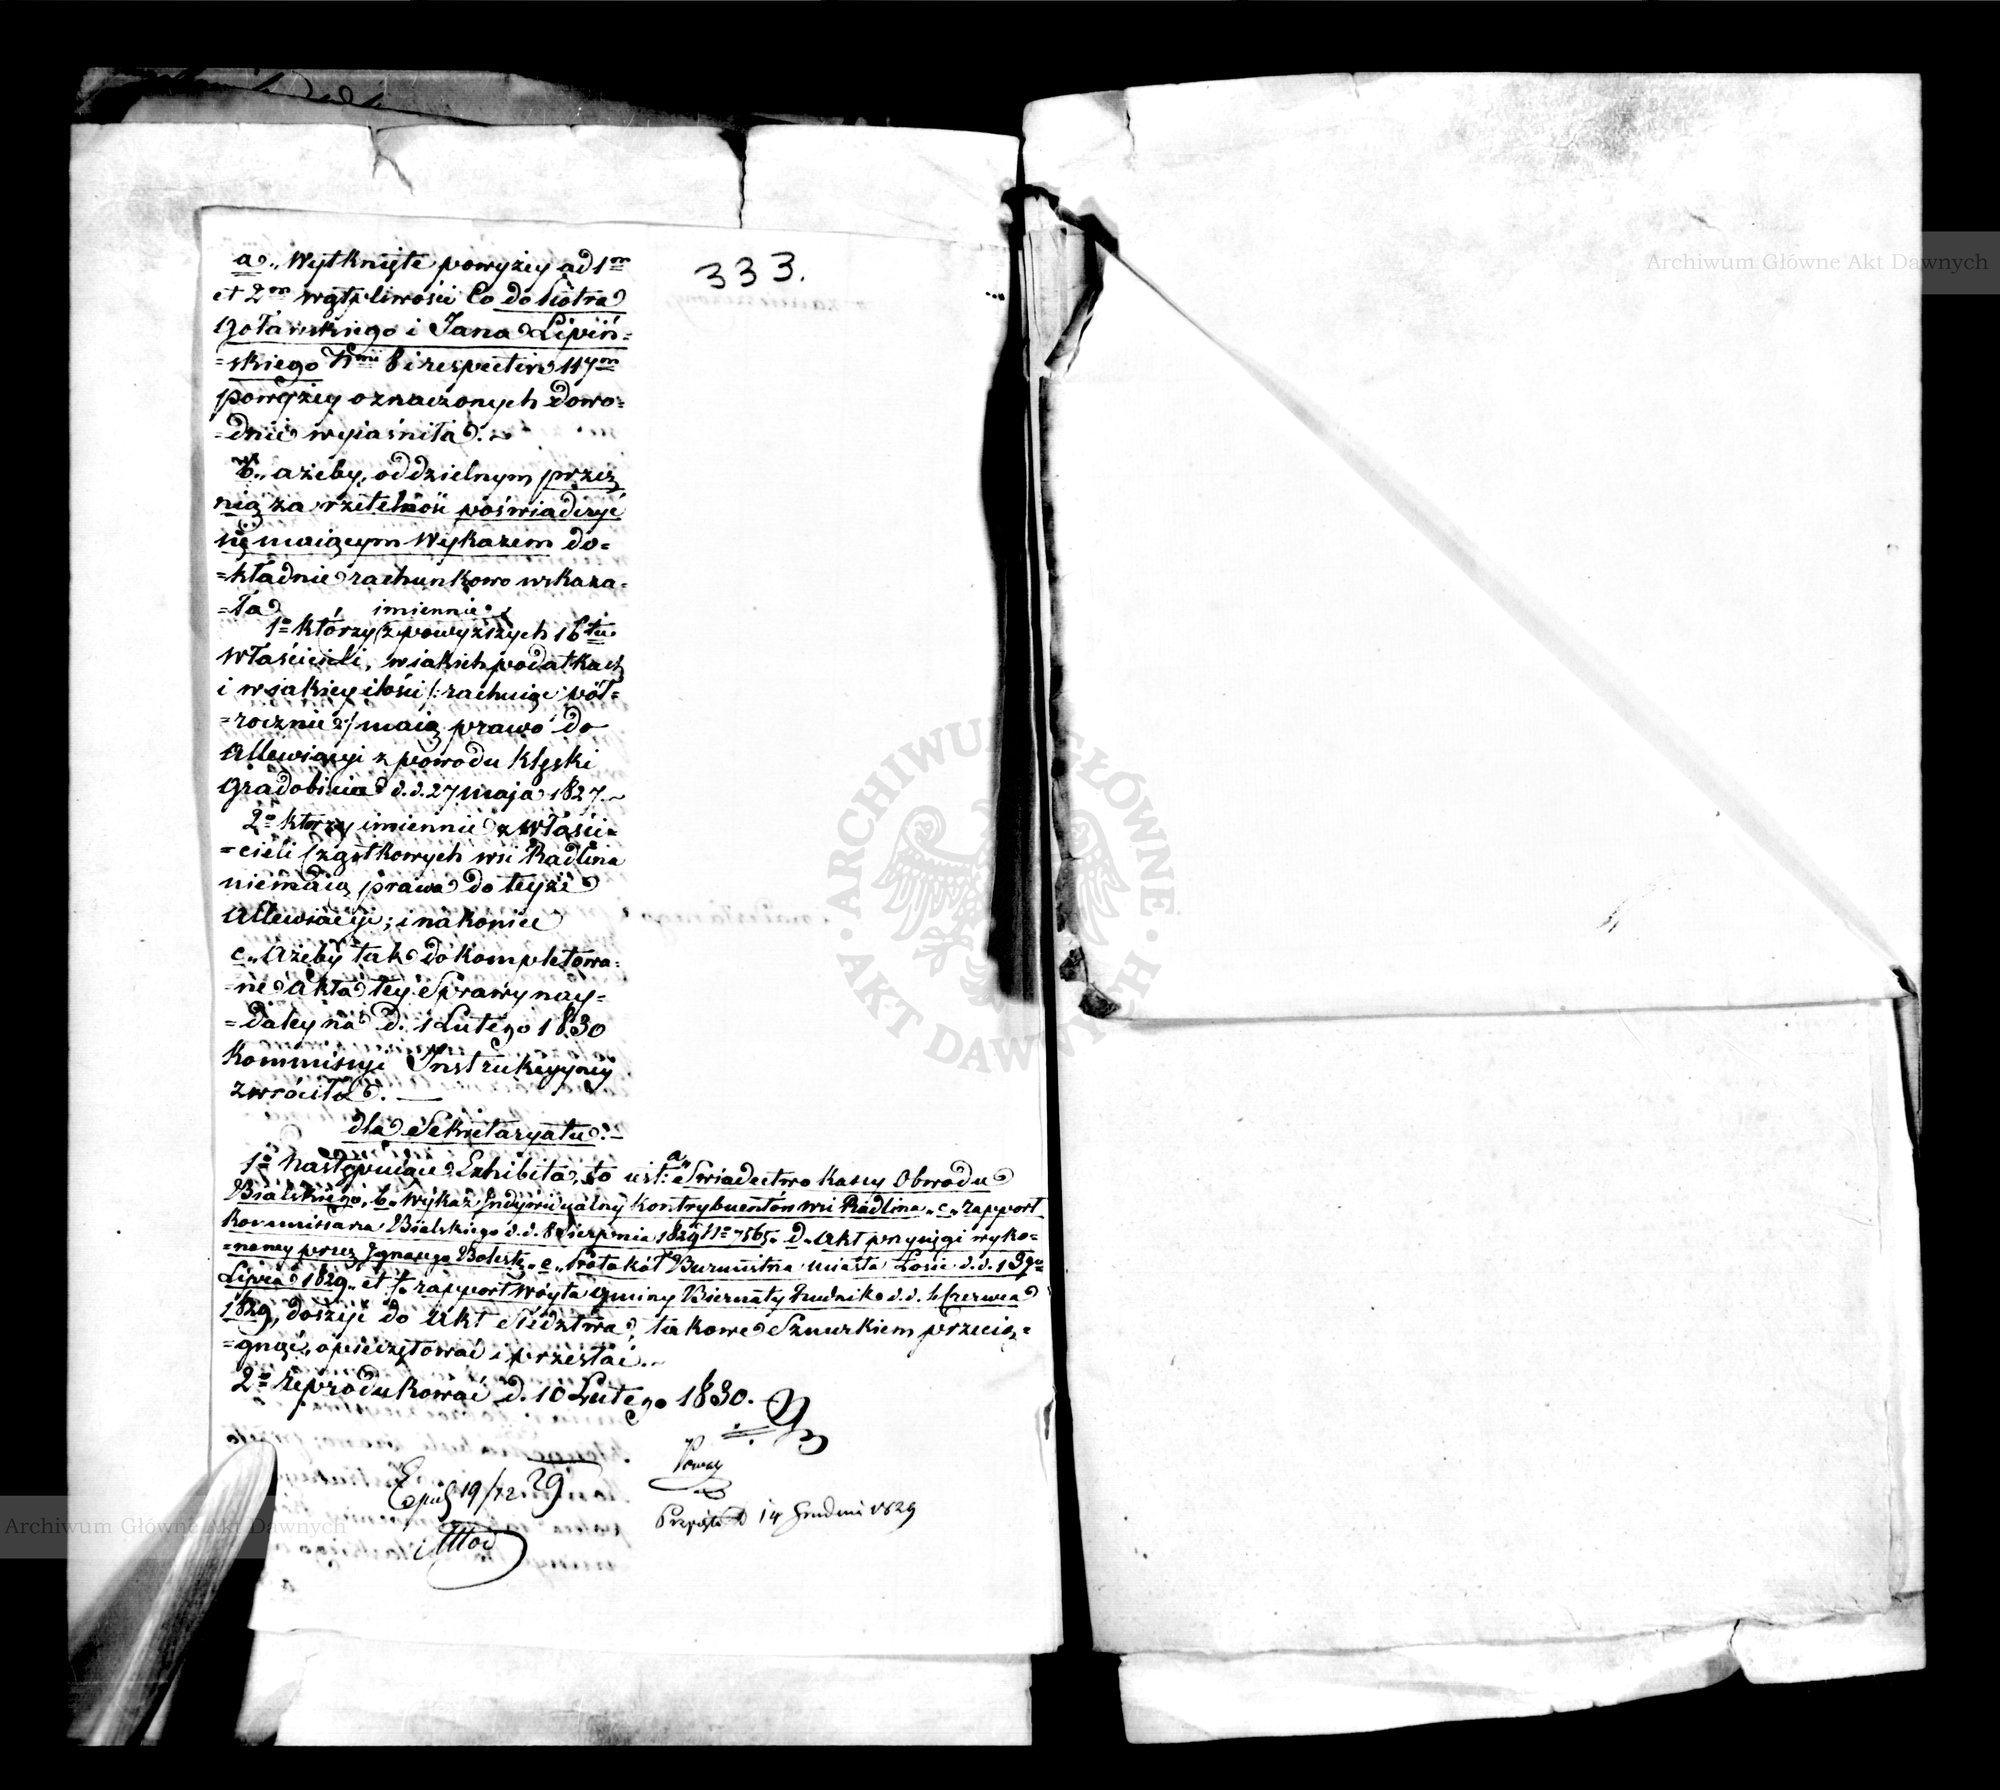 333.
a „ Wytknięte powyżey ad 1m
et 2m wątpliwości Co do Piotra
Goławskiego i Jana Lipiń=
=skiego Nmi 8 i respective 11ym
powyżey oznaczonych dowo=
=dnie wyiaśniła. ~
b „ ażeby, oddzielnym przez
nią za rzetelność poświadczyć
się maiącym Wykazem do=
=kładnie rachunkowo wskaza=
=ła
imiennie
1o którzy z powyższych 16tu
Właścicieli, w iakich podatkach
i w iakiey ilości /: rachuiąc pół=
=rocznie :/ maią prawo do
Allewiacyi z powodu klęski
Gradobicia d. d. 27 Maja 1827. ~
2o którzy imiennie z Właści=
=cieli Cząstkowych wsi Radlina
niemaią prawa do teyże
Allewiacyi; i nakoniec
c „ Ażeby tak dokompletowa=
=ne Akta tey Sprawy nay=
=daley na d. 1 Lutego 1830
Kommissyi Instrukcyyney
zwróciła. —
dla Sekretaryatu. —
1o Następuiące Exhibita, to iest: a „ Swiadectwo Kassy Obwodu
Bialskiego, b „ Wykaz Indywidualny Kontrybuentów wsi Radlina „ c „ rapport
Kommissarza Bialskiego d. d. 8 Sierpnia 1829 No 7565. d „ Akt przysięgi wyko=
=naney przez Ignacego Bolesta „ e „ Protokół Burmistrza miasta Łosic d. d. 13go
Lipca 1829 „ et f „ rapport Wóyta gminy Biernaty Rudnik d. d. 4 Czerwca
1829, doszyć do Akt Śledztwa, takowe Sznurkiem przecią=
=gnąć, opieczętować i przesłać. ~
2o reprodukować d. 10 Lutego 1830.
Exped 19/12 29
Przepisał d 14 Grudnia 1829
Archiwum Główne Akt Dawnych
ARCHIWUM GŁÓWNE · AKT DAWNYCH ·
Archiwum Główne Akt Dawnych